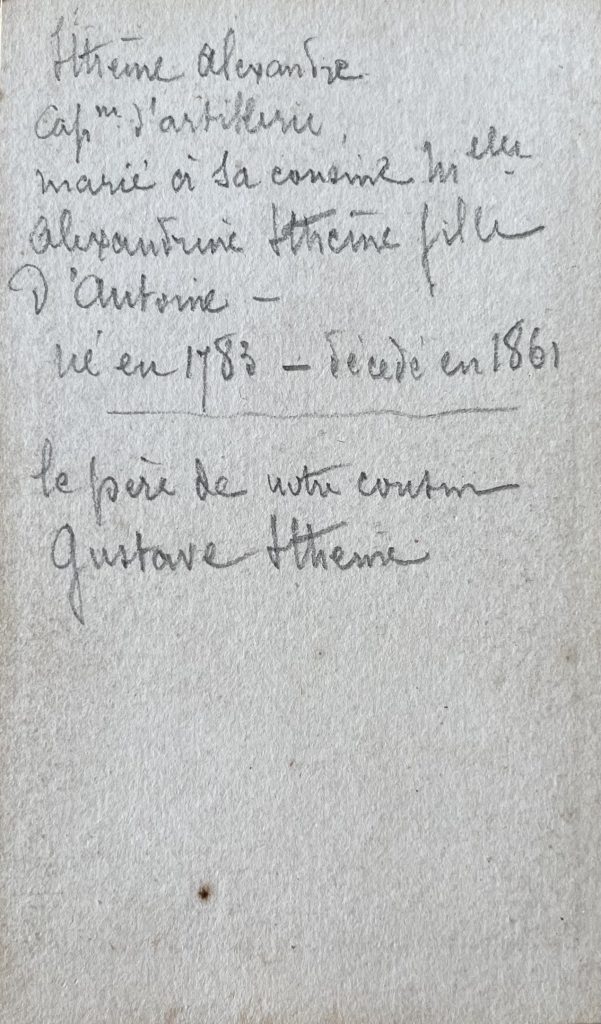 Sthème Alexandre
Capne d'artillerie,
marié à sa cousine Melle
Alexandrine Sthème fille
D'Antoine –
né en 1783 – décédé en 1861
le père de notre cousin
Gustave Stheme